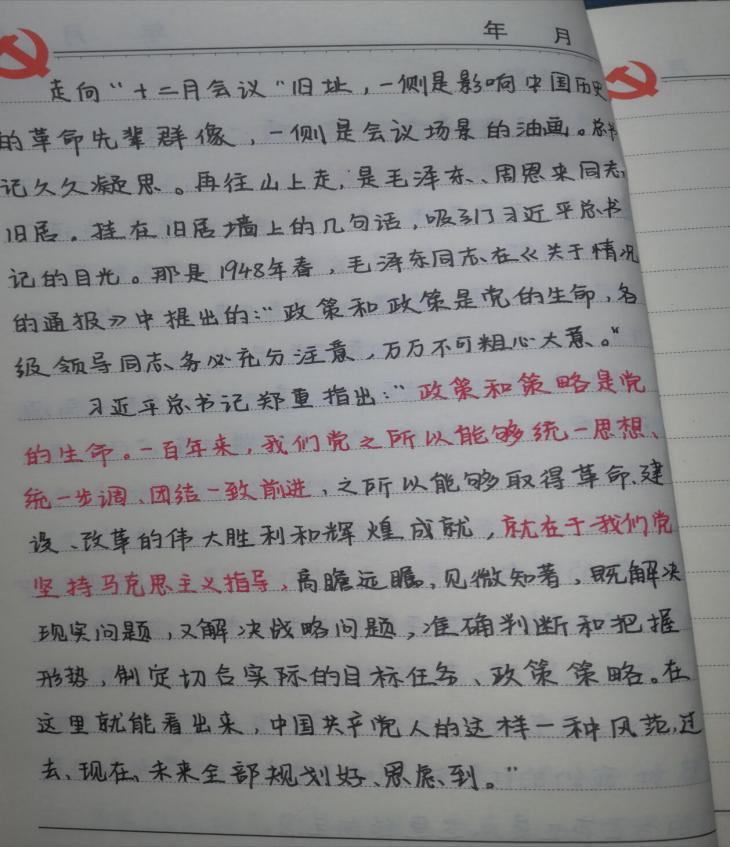 年 月
走向“十二月会议”旧址，一侧是影响中国历史
的革命先辈群像，一侧是会议场景的油画。总书
记久久凝思。再往山上走，是毛泽东、周恩来同志
旧居。挂在旧居墙上的几句话，吸引了习近平总书
记的目光。那是1948年春，毛泽东同志在《关于情况
的通报》中提出的：“政策和政策是党的生命，各
级领导同志务必充分注意，万万不可粗心大意。”
习近平总书记郑重指出：“政策和策略是党
的生命。一百年来，我们党之所以能够统一思想、
统一步调、团结一致前进，之所以能够取得革命、建
设、改革的伟大胜利和辉煌成就，就在于我们党
坚持马克思主义指导，高瞻远瞩，见微知著，既解决
现实问题，又解决战略问题，准确判断和把握
形势，制定切合实际的目标任务、政策策略。在
这里就能看出来，中国共产党人的这样一种风范，过
去、现在、未来全部规划好、思虑到。”